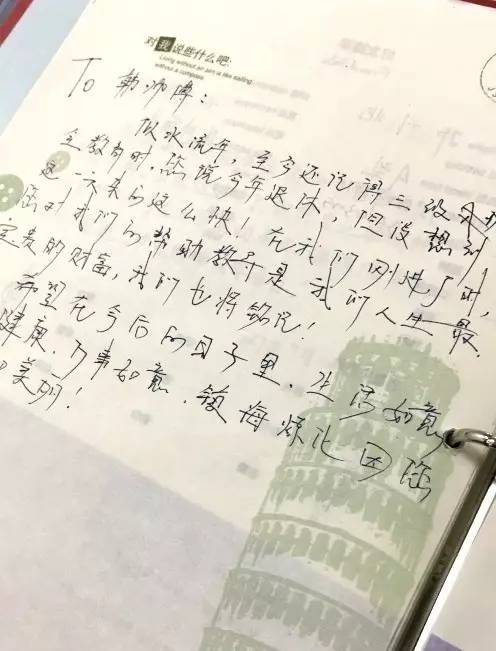 对我说些什么吧:
Living without an aim is like sailing
without a compass
To 韩师傅:
似水流年,至今还记得三级安
全教育时,您说今年退休,但没想到
这一天来的这么快!在我们刚进厂时,
您对我们的帮助教导是我们人生最
宝贵的财富,我们也将铭记!
希望在今后的日子里、生活如意,
健康、万事如意、镇海炼化因您
美丽!